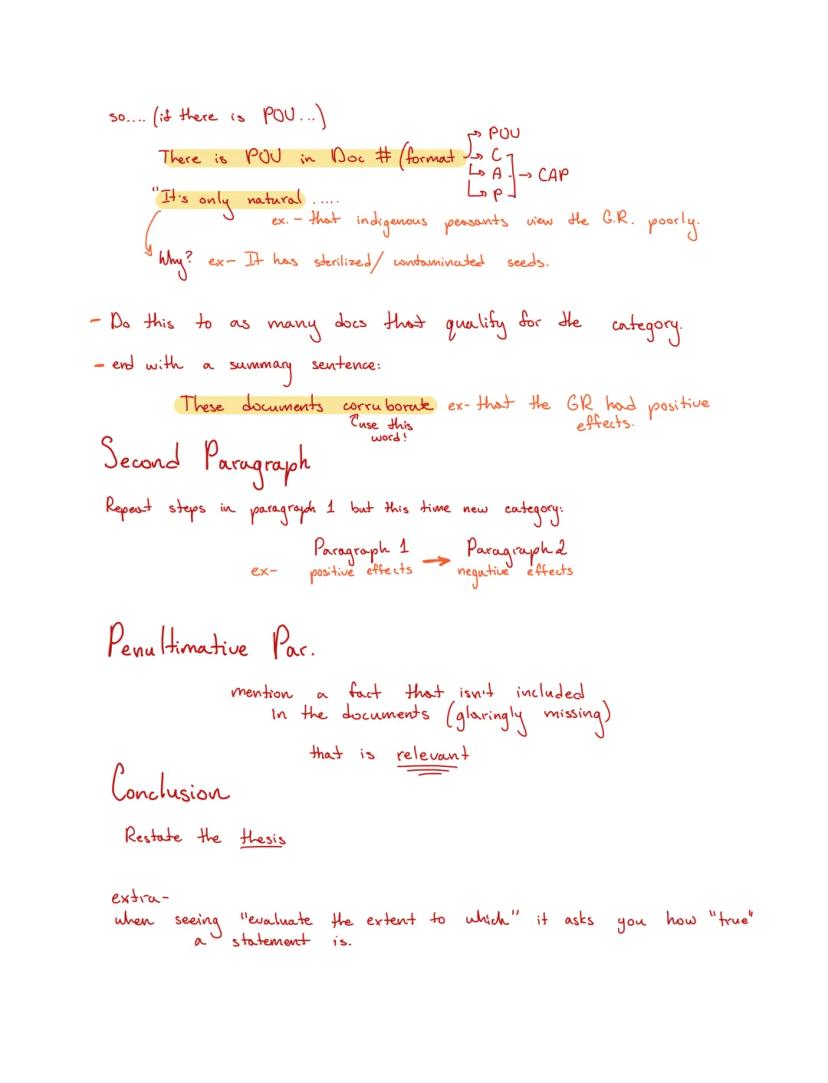 so.... (if there is POV...)
There is POV in Doc # (format → POV
→ C
→ A → CAP
→ P
"It's only natural .....
ex. - that indigenous peasants view the G.R. poorly.
Why? ex- It has sterilized/contaminated seeds.
- Do this to as many docs that qualify for the category.
- end with a summary sentence:
These documents corruborate ex- that the GR had positive
effects.
use this
word!
Second Paragraph
Repeat steps in paragraph 1 but this time new category:
Paragraph 1 → Paragraph 2
ex- positive effects negative effects
Penultimative Par.
mention a fact that isn't included
in the documents (glaringly missing)
that is relevant
Conclusion
Restate the thesis
extra-
when seeing "evaluate the extent to which" it asks you how "true"
a statement is.